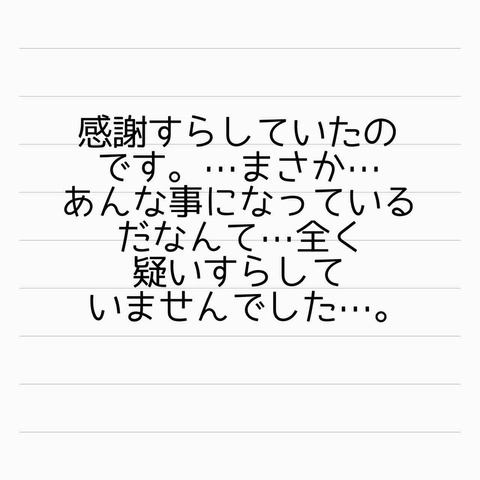 感謝すらしていたの
です。…まさか…
あんな事になっている
だなんて…全く
疑いすらして
いませんでした…。